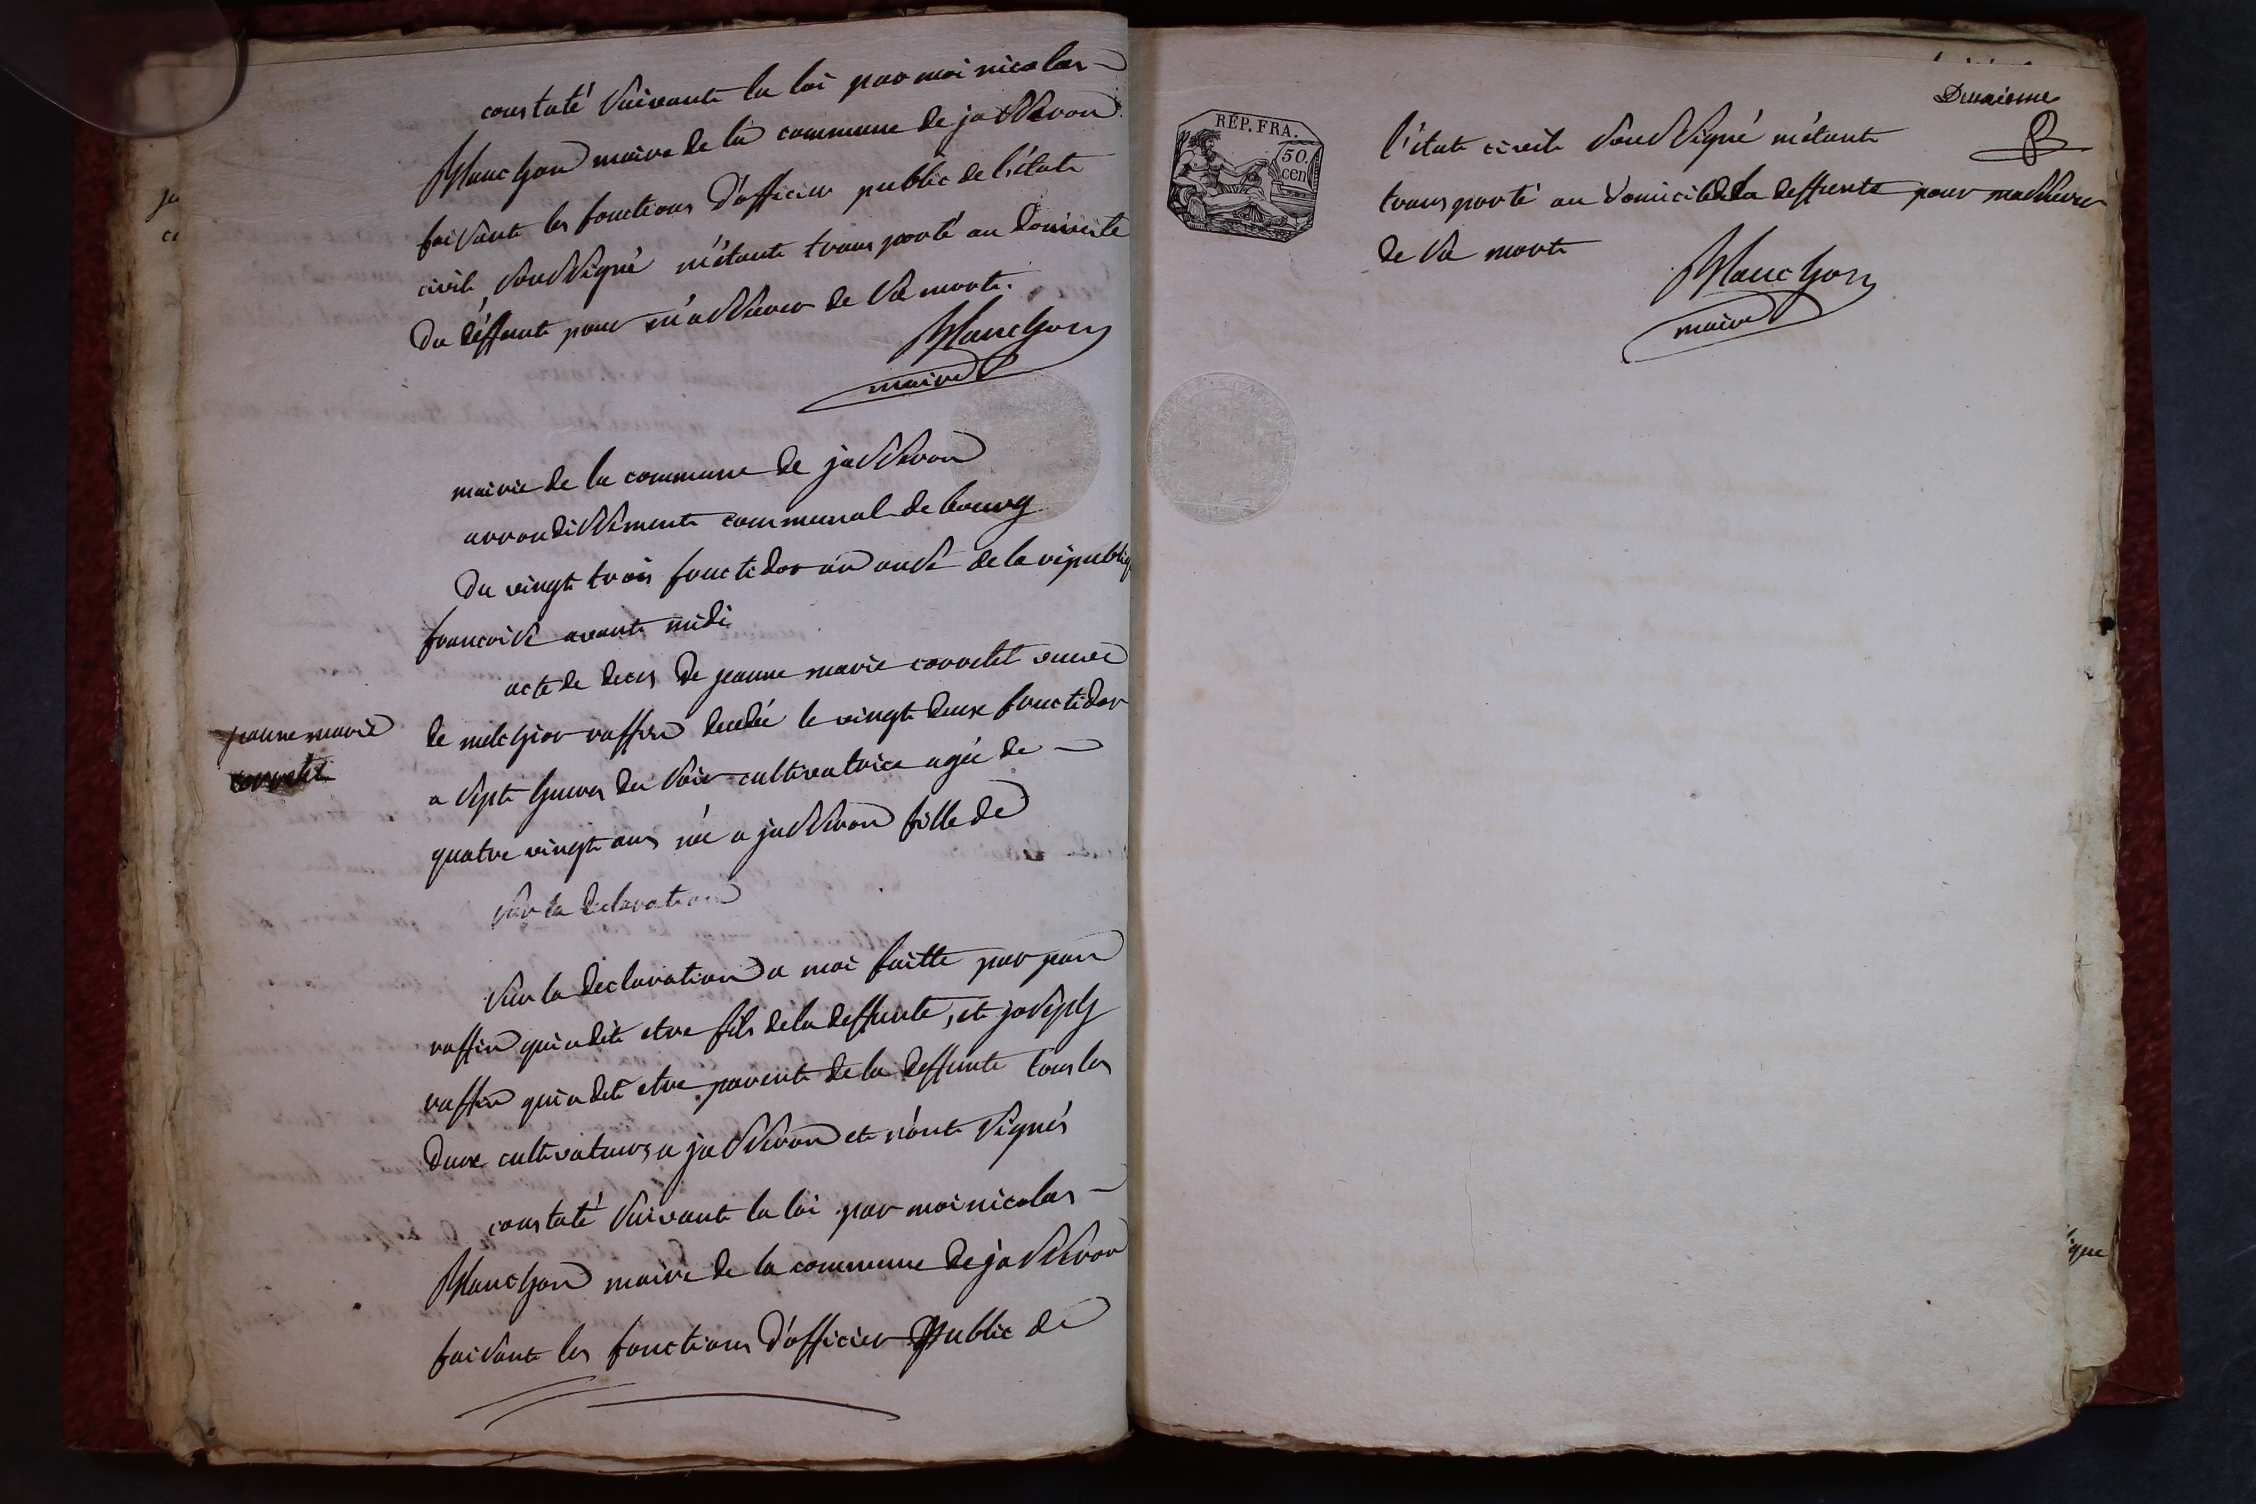 constaté suivant la loi par moi nicolas
Manchon maire de la commune de jasseron
faisant les fonctions d'officier public de l'état
civil soussigné m'étant transporté au domicile
du déffunt pour m'assurer de sa mort.
Manchon
maire
mairie de la commune de jasseron
arrondissement communal de bourg
du vingt trois fructidor an onse de la républiq
francoise avant midi
acte de deces de jeanne marie corretel veuve
de melchior raffin decedée le vingt deux fructidor
a sept heures du soir cultivatrice agée de
quatre vingt ans née a jasseron fille de
jeanne marie
corretel
sur la declaration
sur la declaration a moi faitte par jean
raffin qui a dit etre fils de la deffunte, et joseph
raffin qui a dit etre parent de la deffunte tous les
deux cultivateurs a jasseron et n'ont signés
constaté suivant la loi par moi nicolas
Manchon maire de la commune de jasseron
faisant les fonctions d'officier public de
RÉP. FRA.
50.
cen
Deuxieme
l'état civil soussigné m'étant
transporté au domicile de la deffunte pour massurer
de sa mort
Manchon
maire
ique